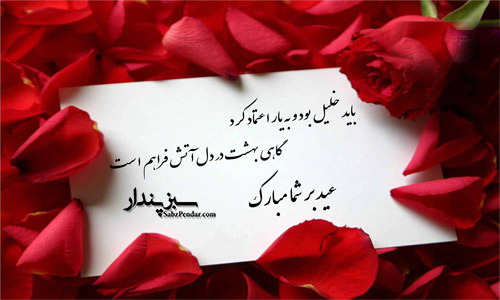 باید خلیل بود و به یار اعتماد کرد
گاهی بهشت در دل آتش فراهم است
عید بر شما مبارک
سبز پندار
SabzPendar.com